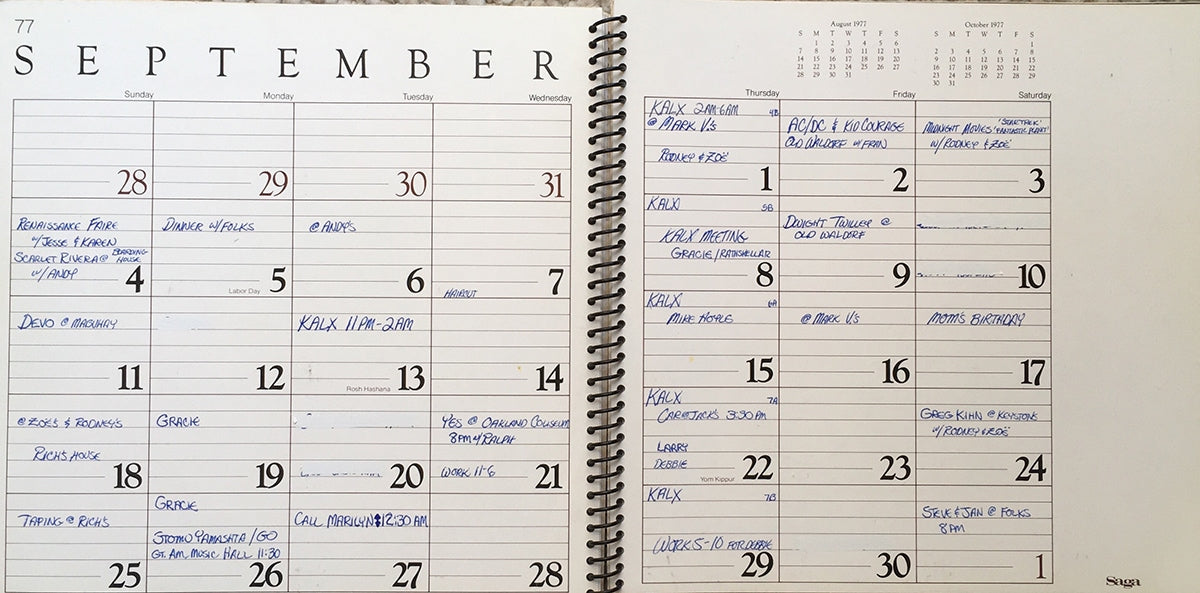 77
SEPTEMBER
Sunday Monday Tuesday Wednesday
28 29 30 31
RENAISSANCE FAIRE
W/JESSE & KAREN
SCARLET RIVERA @ BOARDING HOUSE
W/ ANDY
4
DINNER W/FOLKS
Labor Day 5
@ ANDY'S
6
HAIRCUT
7
DEVO @ MABUHAY
11
12
KALX 11PM-2AM
Rosh Hashana 13
14
@ ZOË'S & RODNEY'S
RICH'S HOUSE
18
GRACIE
19
20
YES @ OAKLAND COLISEUM
8PM W/RALPH
WORK 11-6
21
TAPING @ RICH'S
25
GRACIE
STOMU YAMASHTA / GO
GT. AM. MUSIC HALL 11:30
26
CALL MARILYN 12:30 AM
27
28
August 1977
S M T W T F S
1 2 3 4 5 6
7 8 9 10 11 12 13
14 15 16 17 18 19 20
21 22 23 24 25 26 27
28 29 30 31
October 1977
S M T W T F S
1
2 3 4 5 6 7 8
9 10 11 12 13 14 15
16 17 18 19 20 21 22
23 24 25 26 27 28 29
30 31
Thursday Friday Saturday
KALX 2AM-6AM 4B
@ MARK V.'s
RODNEY & ZOË
1
AC/DC & KID COURAGE
OLD WALDORF W/ FRAN
2
MIDNIGHT MOVIES 'STARTREK' 'FANTASTIC PLANET'
W/RODNEY & ZOË
3
KALX 5B
KALX MEETING
GRACIE/RATHSKELLAR
8
DWIGHT TWILLEY @
OLD WALDORF
9
10
KALX 6A
MIKE HOYLE
15
@ MARK V.'s
16
MOM'S BIRTHDAY
17
KALX 7A
3:30 PM
LARRY
DEBBIE
Yom Kippur 22
23
GREG KIHN @ KEYSTONE
W/RODNEY & ZOË
24
KALX 7B
WORK 5-10 FOR DEBBIE
29
30
STEVE & JAN @ FOLKS
8PM
1
Saga